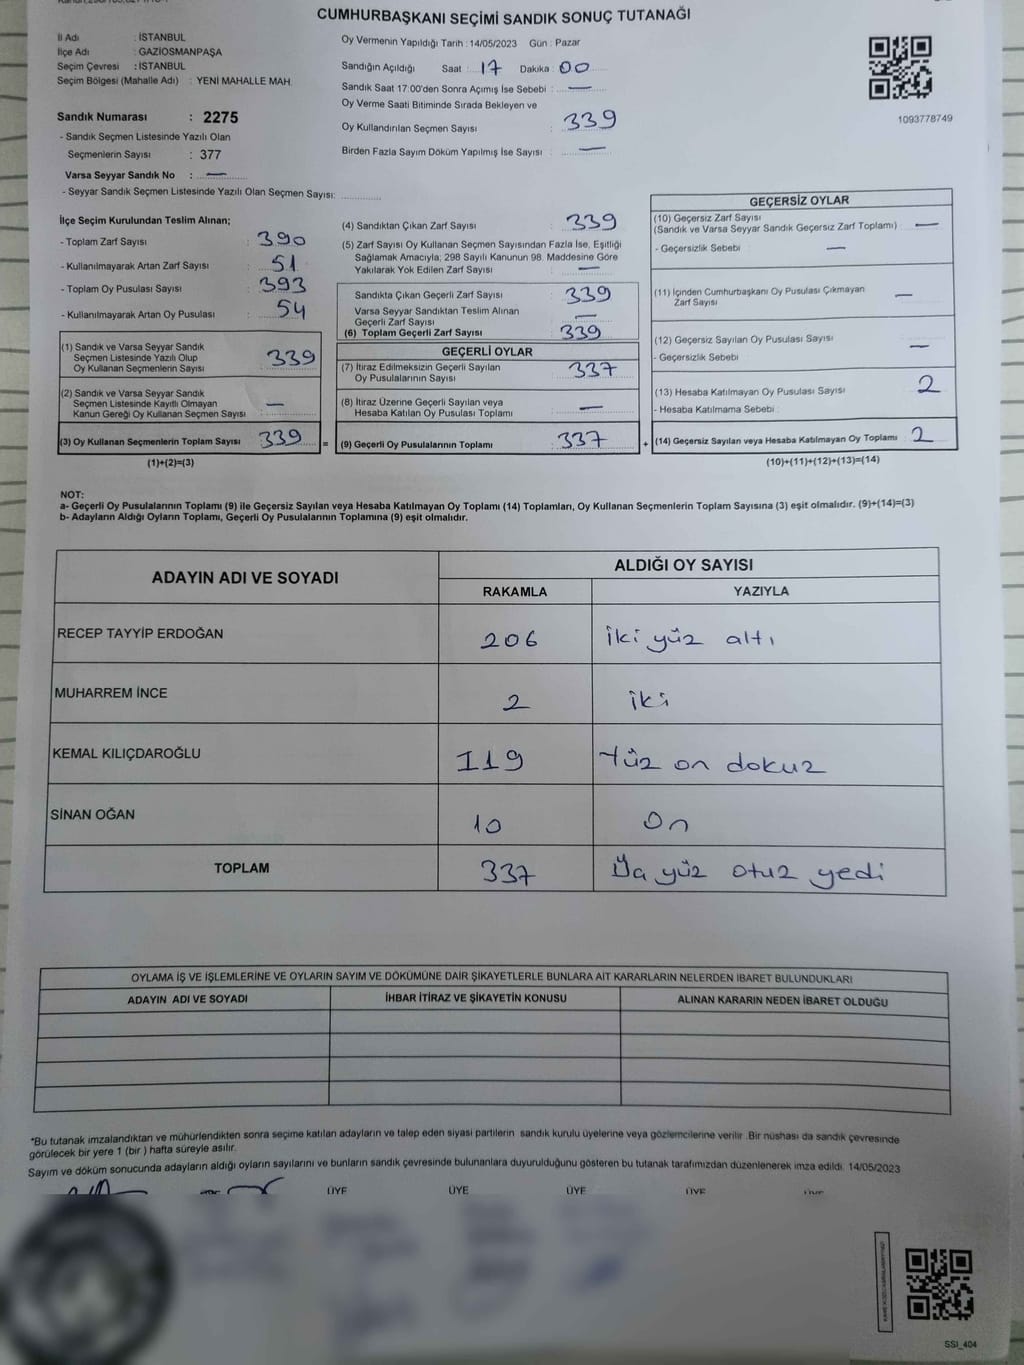 CUMHURBAŞKANI SEÇİMİ SANDIK SONUÇ TUTANAĞI
İl Adı : İSTANBUL
İlçe Adı : GAZİOSMANPAŞA
Seçim Çevresi : İSTANBUL
Seçim Bölgesi (Mahalle Adı) : YENİ MAHALLE MAH.
Sandık Numarası : 2275
- Sandık Seçmen Listesinde Yazılı Olan
Seçmenlerin Sayısı : 377
Varsa Seyyar Sandık No : —
- Seyyar Sandık Seçmen Listesinde Yazılı Olan Seçmen Sayısı:
Oy Vermenin Yapıldığı Tarih : 14/05/2023 Gün : Pazar
Sandığın Açıldığı Saat : 17 Dakika : 00
Sandık Saat 17:00'den Sonra Açımış İse Sebebi : —
Oy Verme Saati Bitiminde Sırada Bekleyen ve
Oy Kullandırılan Seçmen Sayısı : 339
Birden Fazla Sayım Döküm Yapılmış İse Sayısı : —
1093778749
İlçe Seçim Kurulundan Teslim Alınan;
- Toplam Zarf Sayısı : 390
- Kullanılmayarak Artan Zarf Sayısı : 51
- Toplam Oy Pusulası Sayısı : 393
- Kullanılmayarak Artan Oy Pusulası : 54
(1) Sandık ve Varsa Seyyar Sandık
Seçmen Listesinde Yazılı Olup
Oy Kullanan Seçmenlerin Sayısı 339
(2) Sandık ve Varsa Seyyar Sandık
Seçmen Listesinde Kayıtlı Olmayan
Kanun Gereği Oy Kullanan Seçmen Sayısı —
(3) Oy Kullanan Seçmenlerin Toplam Sayısı 339 =
(1)+(2)=(3)
(4) Sandıktan Çıkan Zarf Sayısı : 339
(5) Zarf Sayısı Oy Kullanan Seçmen Sayısından Fazla İse, Eşitliği
Sağlamak Amacıyla; 298 Sayılı Kanunun 98. Maddesine Göre
Yakılarak Yok Edilen Zarf Sayısı : —
Sandıkta Çıkan Geçerli Zarf Sayısı 339
Varsa Seyyar Sandıktan Teslim Alınan
Geçerli Zarf Sayısı —
(6) Toplam Geçerli Zarf Sayısı 339
GEÇERLİ OYLAR
(7) İtiraz Edilmeksizin Geçerli Sayılan
Oy Pusulalarının Sayısı 337
(8) İtiraz Üzerine Geçerli Sayılan veya
Hesaba Katılan Oy Pusulası Toplamı —
(9) Geçerli Oy Pusulalarının Toplamı 337 +
GEÇERSİZ OYLAR
(10) Geçersiz Zarf Sayısı
(Sandık ve Varsa Seyyar Sandık Geçersiz Zarf Toplamı) —
- Geçersizlik Sebebi : —
(11) İçinden Cumhurbaşkanı Oy Pusulası Çıkmayan
Zarf Sayısı —
(12) Geçersiz Sayılan Oy Pusulası Sayısı —
- Geçersizlik Sebebi
(13) Hesaba Katılmayan Oy Pusulası Sayısı 2
- Hesaba Katılmama Sebebi :
(14) Geçersiz Sayılan veya Hesaba Katılmayan Oy Toplamı 2
(10)+(11)+(12)+(13)=(14)
NOT:
a- Geçerli Oy Pusulalarının Toplamı (9) ile Geçersiz Sayılan veya Hesaba Katılmayan Oy Toplamı (14) Toplamları, Oy Kullanan Seçmenlerin Toplam Sayısına (3) eşit olmalıdır. (9)+(14)=(3)
b- Adayların Aldığı Oyların Toplamı, Geçerli Oy Pusulalarının Toplamına (9) eşit olmalıdır.
ADAYIN ADI VE SOYADI ALDIĞI OY SAYISI
RAKAMLA YAZIYLA
RECEP TAYYİP ERDOĞAN 206 iki yüz altı
MUHARREM İNCE 2 iki
KEMAL KILIÇDAROĞLU 119 Yüz on dokuz
SİNAN OĞAN 10 On
TOPLAM 337 yüz otuz yedi
OYLAMA İŞ VE İŞLEMLERİNE VE OYLARIN SAYIM VE DÖKÜMÜNE DAİR ŞİKAYETLERLE BUNLARA AİT KARARLARIN NELERDEN İBARET BULUNDUKLARI
ADAYIN ADI VE SOYADI İHBAR İTİRAZ VE ŞİKAYETİN KONUSU ALINAN KARARIN NEDEN İBARET OLDUĞU
*Bu tutanak imzalandıktan ve mühürlendikten sonra seçime katılan adayların ve talep eden siyasi partilerin sandık kurulu üyelerine veya gözlemcilerine verilir. Bir nüshası da sandık çevresinde
görülecek bir yere 1 (bir ) hafta süreyle asılır.
Sayım ve döküm sonucunda adayların aldığı oyların sayılarını ve bunların sandık çevresinde bulunanlara duyurulduğunu gösteren bu tutanak tarafımızdan düzenlenerek imza edildi. 14/05/2023
ÜYE ÜYE ÜYE ÜYE
SSI_404